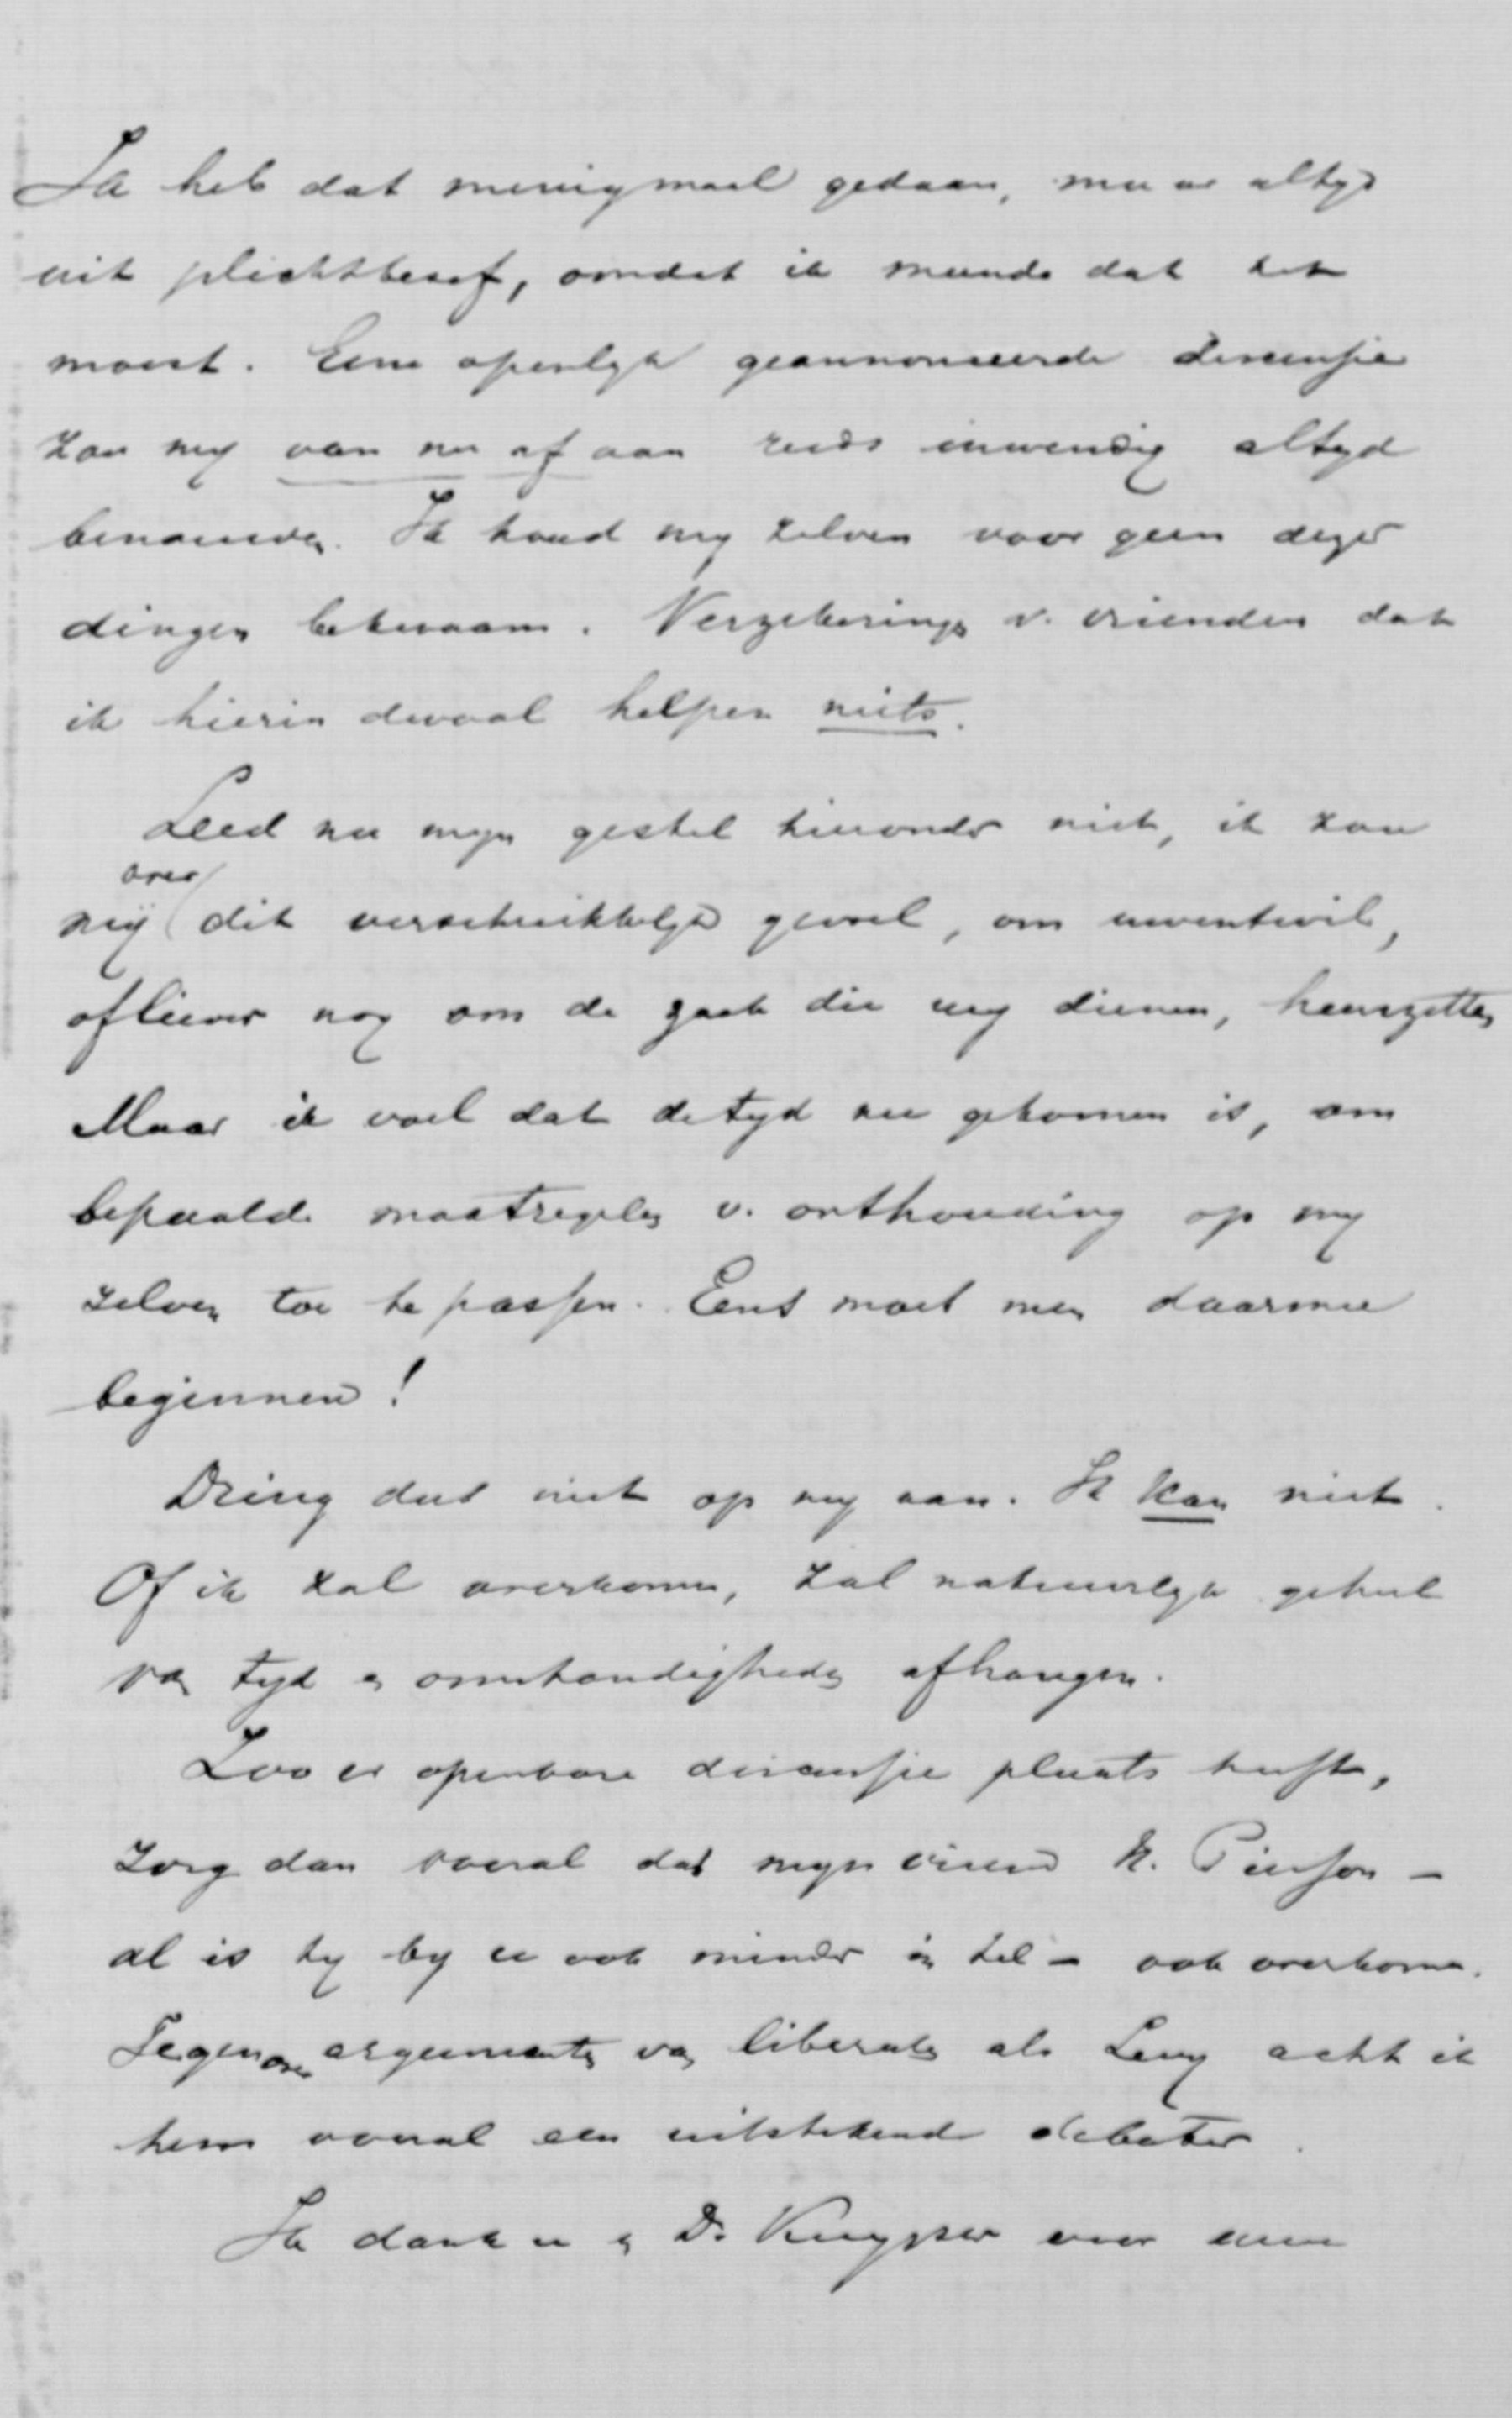 Ik heb dat menigmaal gedaan, maar altyd
uit plichtbesef, omdat ik meende dat het
moest. Eene openlyk geannonceerde discussie
zou my van nu af aan reeds inwendig altyd
benauwen. Ik houd my zelven voor geen dezer
dingen bekwaam. Verzekerings v. vrienden dat
ik hierin dwaal helpen niets.
Leed nu myn gestel hieronder niet, ik zou
my over dit verschrikkelyk gevoel, om
of liever nog om de zaak die wy dienen, heenzetten
Maar ik voel dat de tyd nu gekomen is, om
bepaalde maatregelen v. onthouding op my
zelven toe te passen. Eens moet men daarmee
beginnen!
Dring dus niet op my aan. Ik kan niet.
Of ik zal overkomen, zal natuurlyk geheel
van tyd en omstandigheden afhangen.
Zoo er openbare discussie plaats heeft,
zorg dan vooral dat myn vriend H. Pierson -
al is hy by u ook minder in tel - ook overkome.
Tegenover argumenten van liberalen als Levy acht ik
hem vooral een uitstekend debater.
Ik dank u en Dr. Kuyper voor uwe